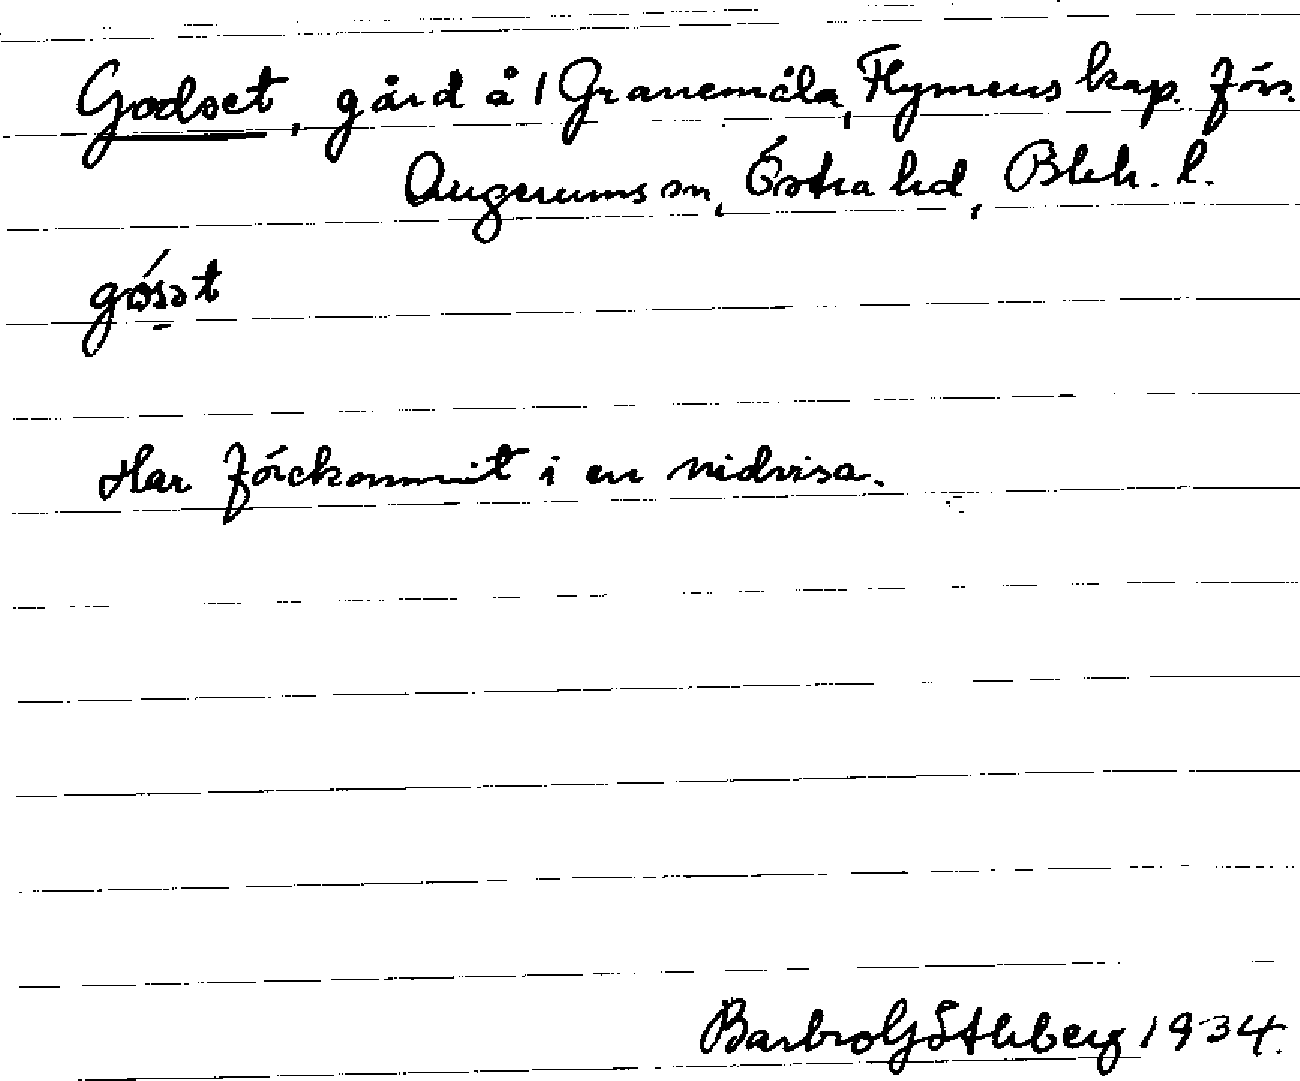 Godset, gård å 1 Granemåla, Flymens kap. förs.
Augerums sn, Östra hd, Blek. l.
Har förekommit i en nidvisa.
Barbro Götheberg 1934.